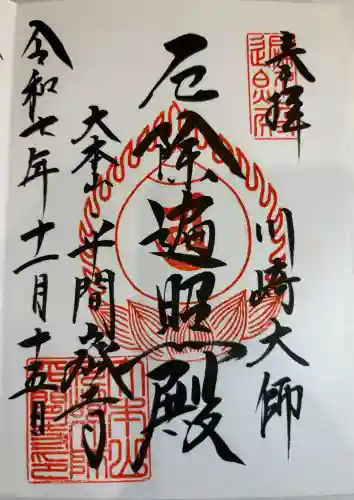 奉拝
川崎大師
厄除遍照殿
大本山平間
令和七年十一月十五日